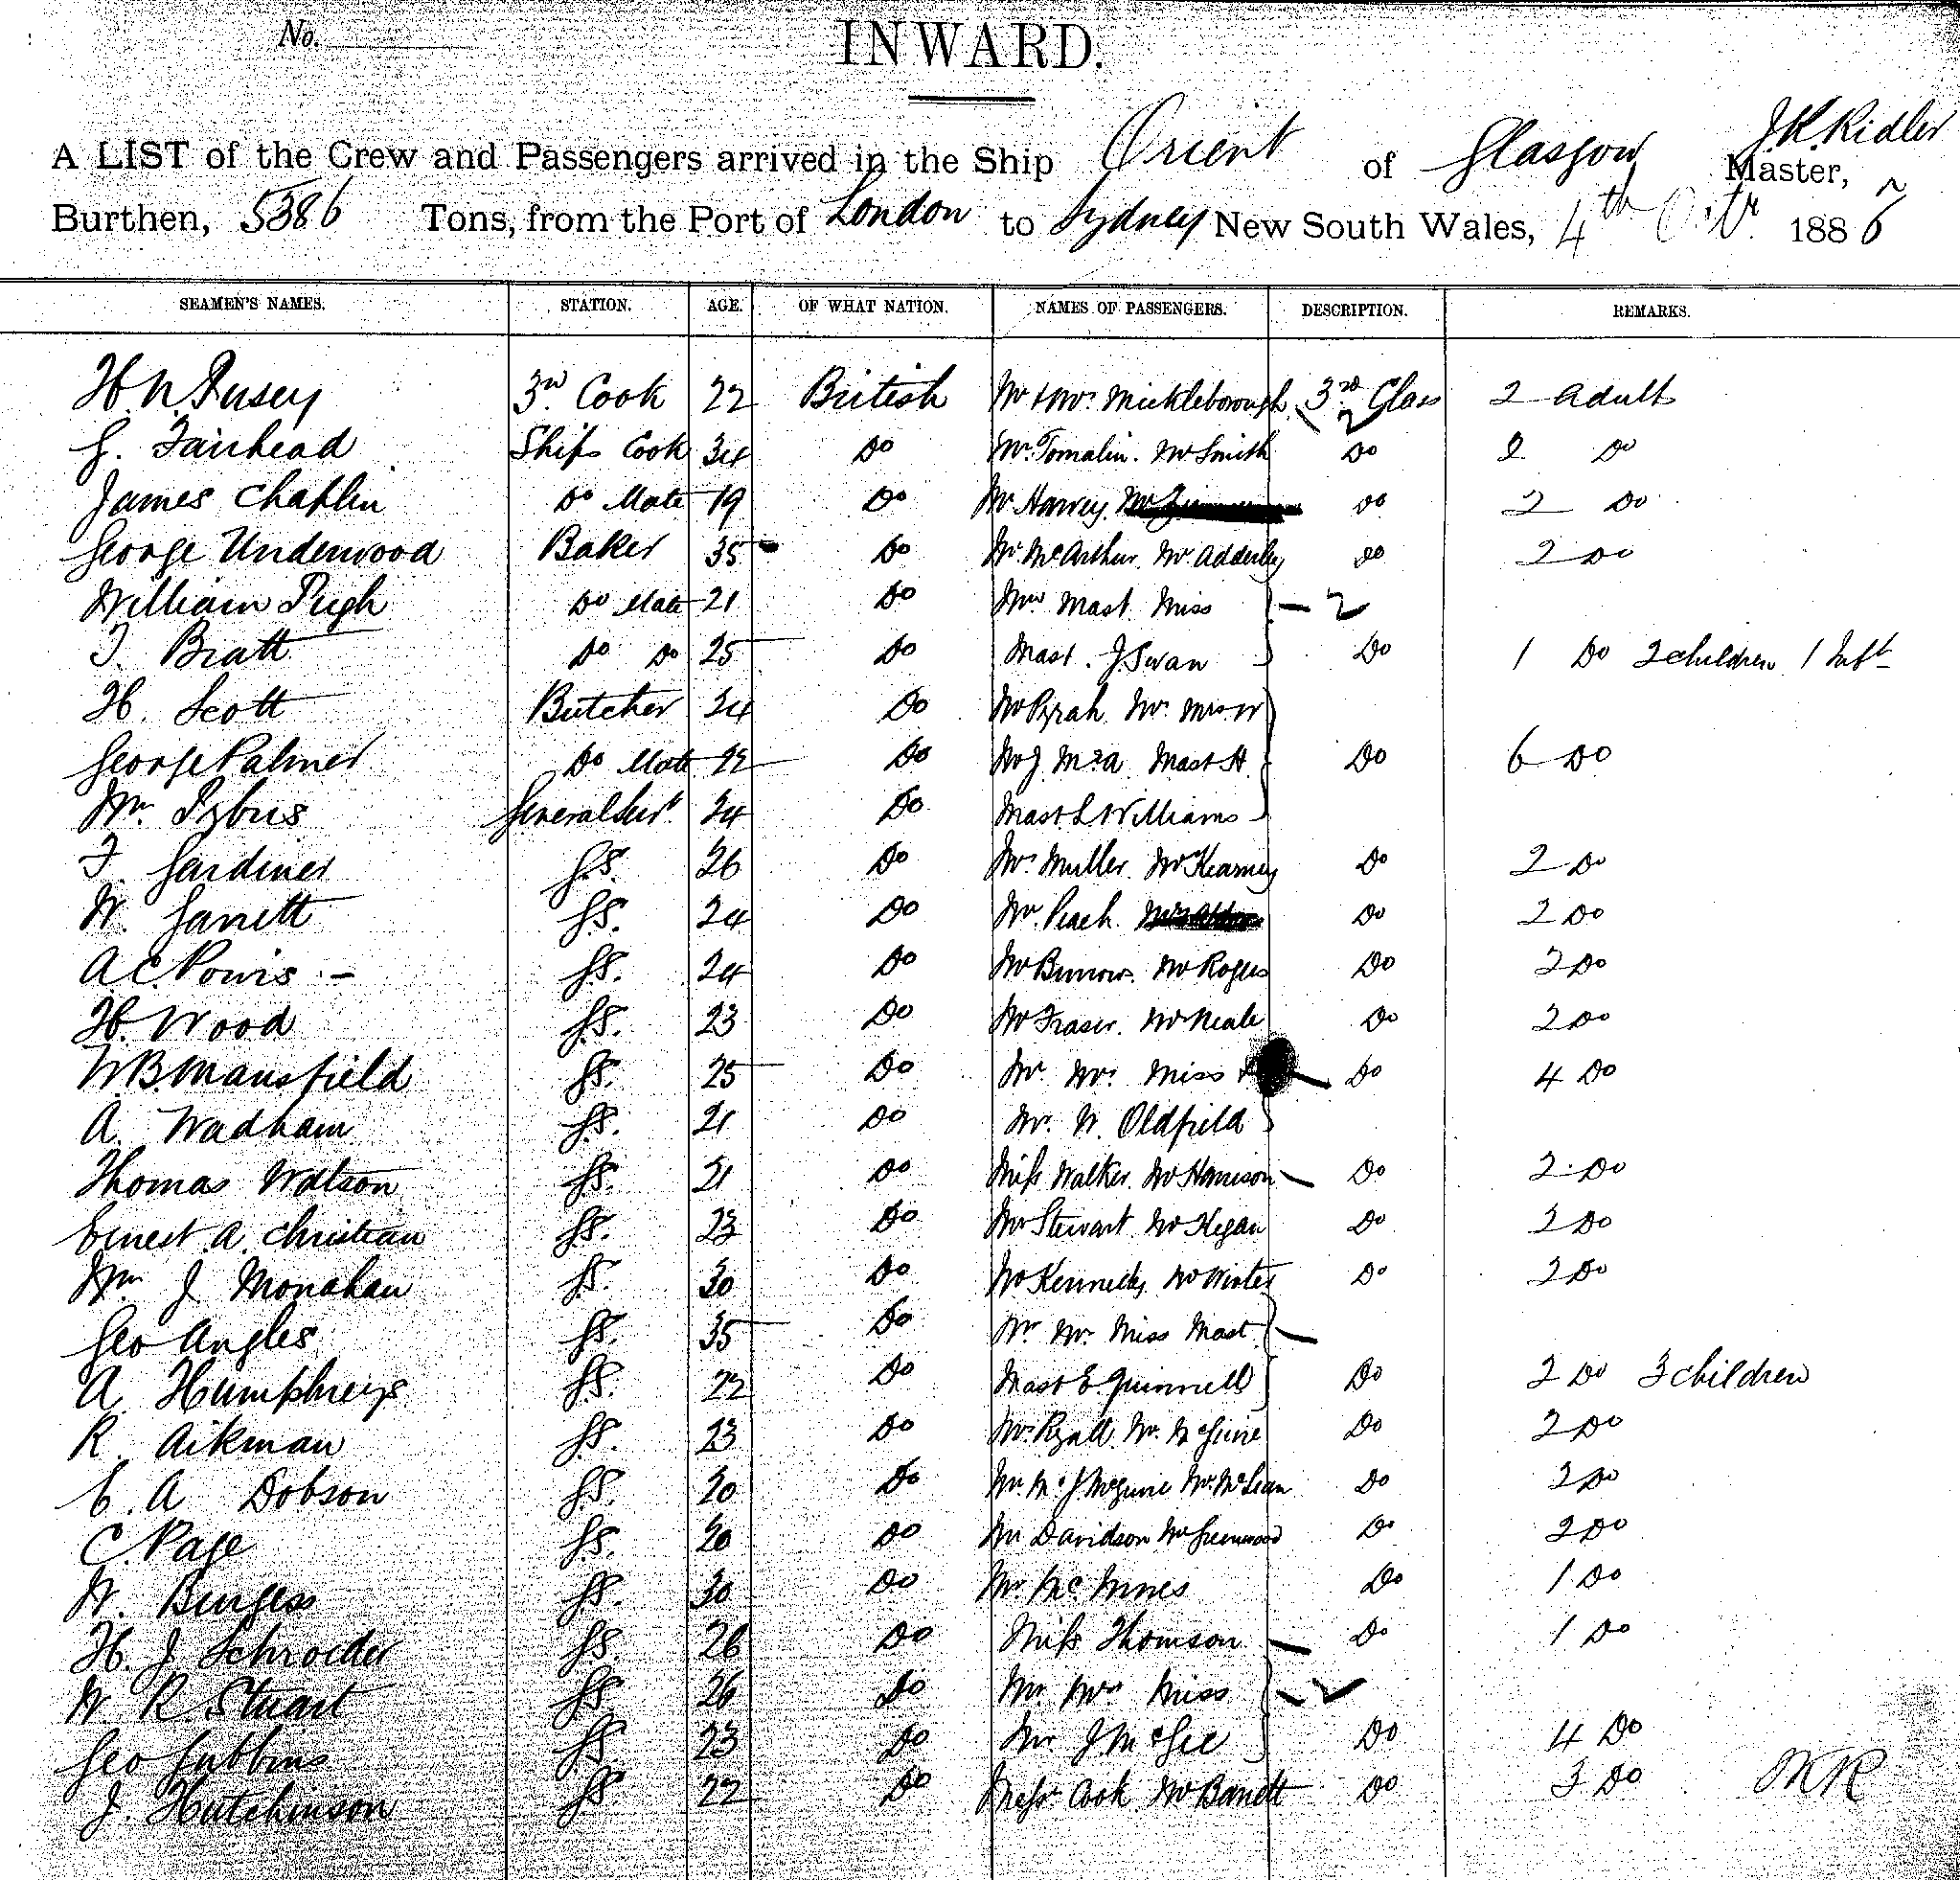 No.
INWARD.
A LIST of the Crew and Passengers arrived in the Ship Orient of Glasgow J.K. Ridler Master,
Burthen, 5386 Tons, from the Port of London to Sydney New South Wales, 4th Octr. 1886
SEAMEN'S NAMES. STATION. AGE. OF WHAT NATION. NAMES OF PASSENGERS. DESCRIPTION. REMARKS.
H. N. Pusey 3rd Cook 22 British Mr & Mrs Mickleborough 3rd Class 2 Adult
G. Fairhead Ships Cook 34 Do Mr Tomalin. Mr Smith Do 2 Do
James Chaplin Do Mate 19 Do Mr Harvey. Do 2 Do
George Underwood Baker 35 Do Mr McArthur. Mr Adderley Do 2 Do
William Pugh Do Mate 21 Do Mrs Mast. Miss
T. Bratt Do Do 25 Do Mast. J. Swan Do 1 Do 2 children 1 Inft
H. Scott Butcher 34 Do Mr Pyrah. Mr. Mrs W
George Palmer Do Mate 22 Do Mr J. Mr A. Mast H. Do 6 Do
Wm. Pybus General Servt. 24 Do Mast. L Williams
F. Gardiner G.S. 26 Do Mr Muller. Mr Kearney Do 2 Do
W. Garrett G.S. 24 Do Mr. Peach. Do 2 Do
A. C. Powis - G.S. 24 Do Mr Burrows. Mr Rogers Do 2 Do
H. Wood G.S. 23 Do Mr Fraser. Mr Neale Do 2 Do
W B. Mansfield G.S. 25 Do Mr. Mrs. Miss Do 4 Do
A. Wadham G.S. 21 Do Mr. W. Oldfield
Thomas Watson G.S. 21 Do Miss Walker. Mr Harrison Do 2 Do
Ernest. A. Christian G.S. 23 Do Mr Stewart. Mr Kegan Do 2 Do
Wm J Monahan G.S. 30 Do Mr Kennedy. Mr Winter Do 2 Do
Geo Angles G.S. 35 Do Mr. Mrs. Miss Mast.
A. Humphreys G.S. 22 Do Mast E. Quinnell Do 2 Do 3 children
R. Aikman G.S. 23 Do Mr. Ryall. Mr. McGuire Do 2 Do
E. A Dobson G.S. 20 Do McGuire Mr. McLean Do 2 Do
C. Page G.S. 20 Do Mr Davidson Mr Greenwood Do 2 Do
W. Burgess G.S. 30 Do Mr. McInnes Do 1 Do
H. J Schroeder G.S. 26 Do Miss Thomson Do 1 Do
W. R. Stuart G.S. 26 Do Mr. Mrs Miss
Geo Gubbins G.S. 23 Do Mr. J McGee Do 4 Do
J. Hutchinson G.S. 22 Do Messrs Cook. Mr Barrett Do 3 Do